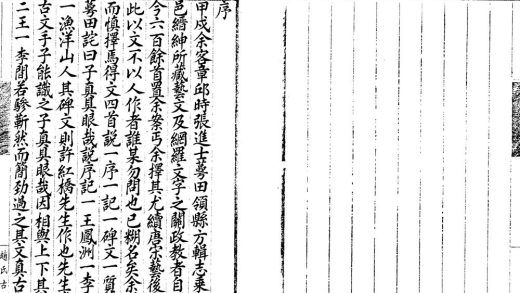 序
甲戌余客章邱時張進士萼田領縣方輯志乗
邑縉紳所藏藝文及網羅文字之關政教者自
今六百餘首置余案丐余擇其尤續唐宗藝後
此以文不以人作者誰某勿問也已糊名矣余
而慎擇焉得文四首説一序一記一碑文一質
萼田詫曰子真具眼哉説序記一王鳳洲一李
一漁洋山人其碑文則許紅橋先生作也先生
古文手子能識之子真具眼哉因相與上下其
二王一李間若驂靳然而簡勁過之其文真古
趙氏古